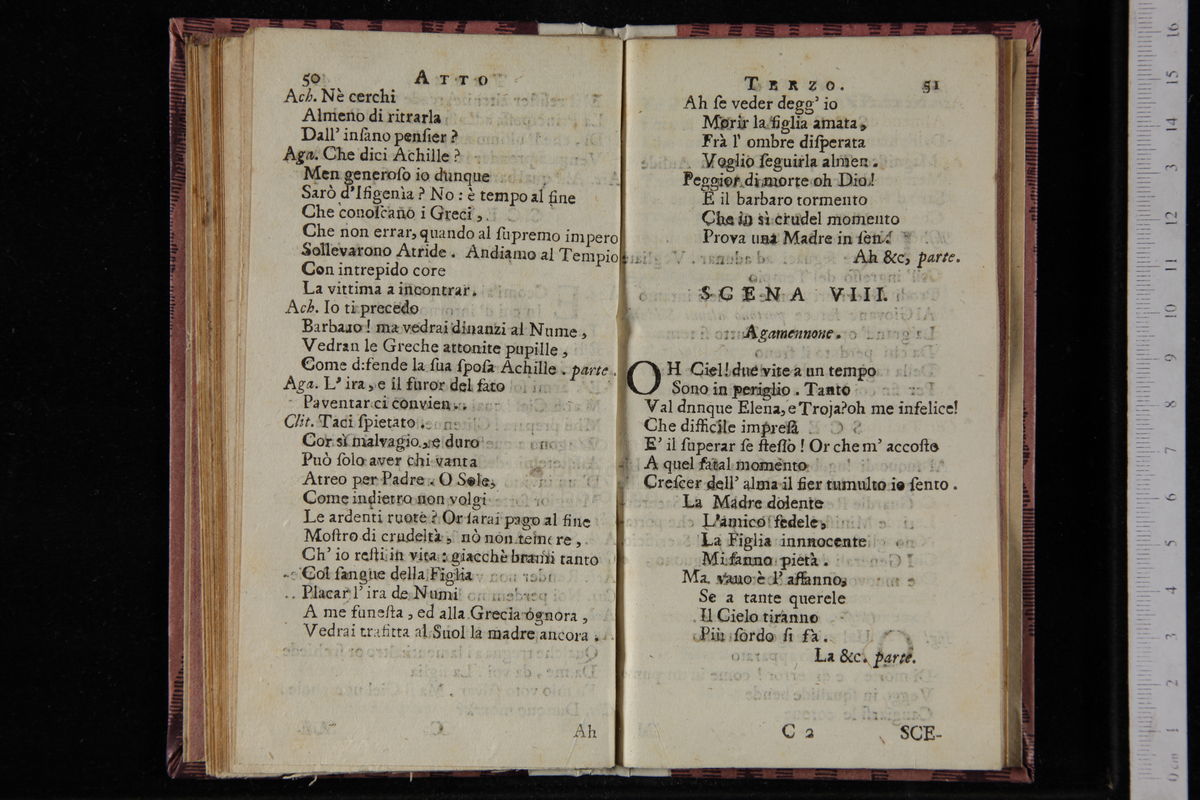 50 ATTO
Ach. Nè cerchi
Almeno di ritrarla
Dall' inſano penſier ?
Aga. Che dici Achille ?
Men generoſo io dunque
Sarò d'Ifigenìa ? No : è tempo al fine
Che conoſcano i Greci ,
Che non errar, quando al ſupremo impero
Sollevarono Atride . Andiamo al Tempio
Con intrepido core
La vittima a incontrar.
Ach. Io ti precedo
Barbaro ! ma vedrai dinanzi al Nume ,
Vedran le Greche attonite pupille ,
Come difende la ſua ſpoſa Achille . parte .
Aga. L' ira , e il furor del fato
Paventar ci convien .
Clit. Taci ſpietato .
Cor sì malvagio , e duro
Può ſolo aver chi vanta
Atreo per Padre . O Sole,
Come indietro non volgi
Le ardenti ruote ? Or ſarai pago al fine
Moſtro di crudeltà , nò non temere ,
Ch' io reſti in vita : giacchè brami tanto
Col ſangue della Figlia
Placar l' ira de Numi
A me funeſta , ed alla Grecia ognora ,
Vedrai trafitta al Suol la madre ancora .
Ah
TERZO. 51
Ah ſe veder degg' io
Morir la figlia amata,
Frà l' ombre diſperata
Voglio ſeguirla almen .
Peggior di morte oh Dio!
E il barbaro tormento
Che in sì crudel momento
Prova una Madre in ſen.
Ah &c, parte.
SCENA VIII.
Agamennone.
OH Ciel! due vite a un tempo
Sono in periglio . Tanto
Val dnnque Elena, e Troja?oh me infelice!
Che difficile impreſa
E' il ſuperar ſe ſteſſo ! Or che m' accoſto
A quel fatal momento
Creſcer dell' alma il fier tumulto io ſento .
La Madre dolente
L'amico fedele,
La Figlia innnocente
Mi fanno pietà .
Ma vano è l' affanno,
Se a tante querele
Il Cielo tiranno
Più ſordo ſi fà .
La &c. parte.
C 2 SCE-
0 cm 1 2 3 4 5 6 7 8 9 10 11 12 13 14 15 16